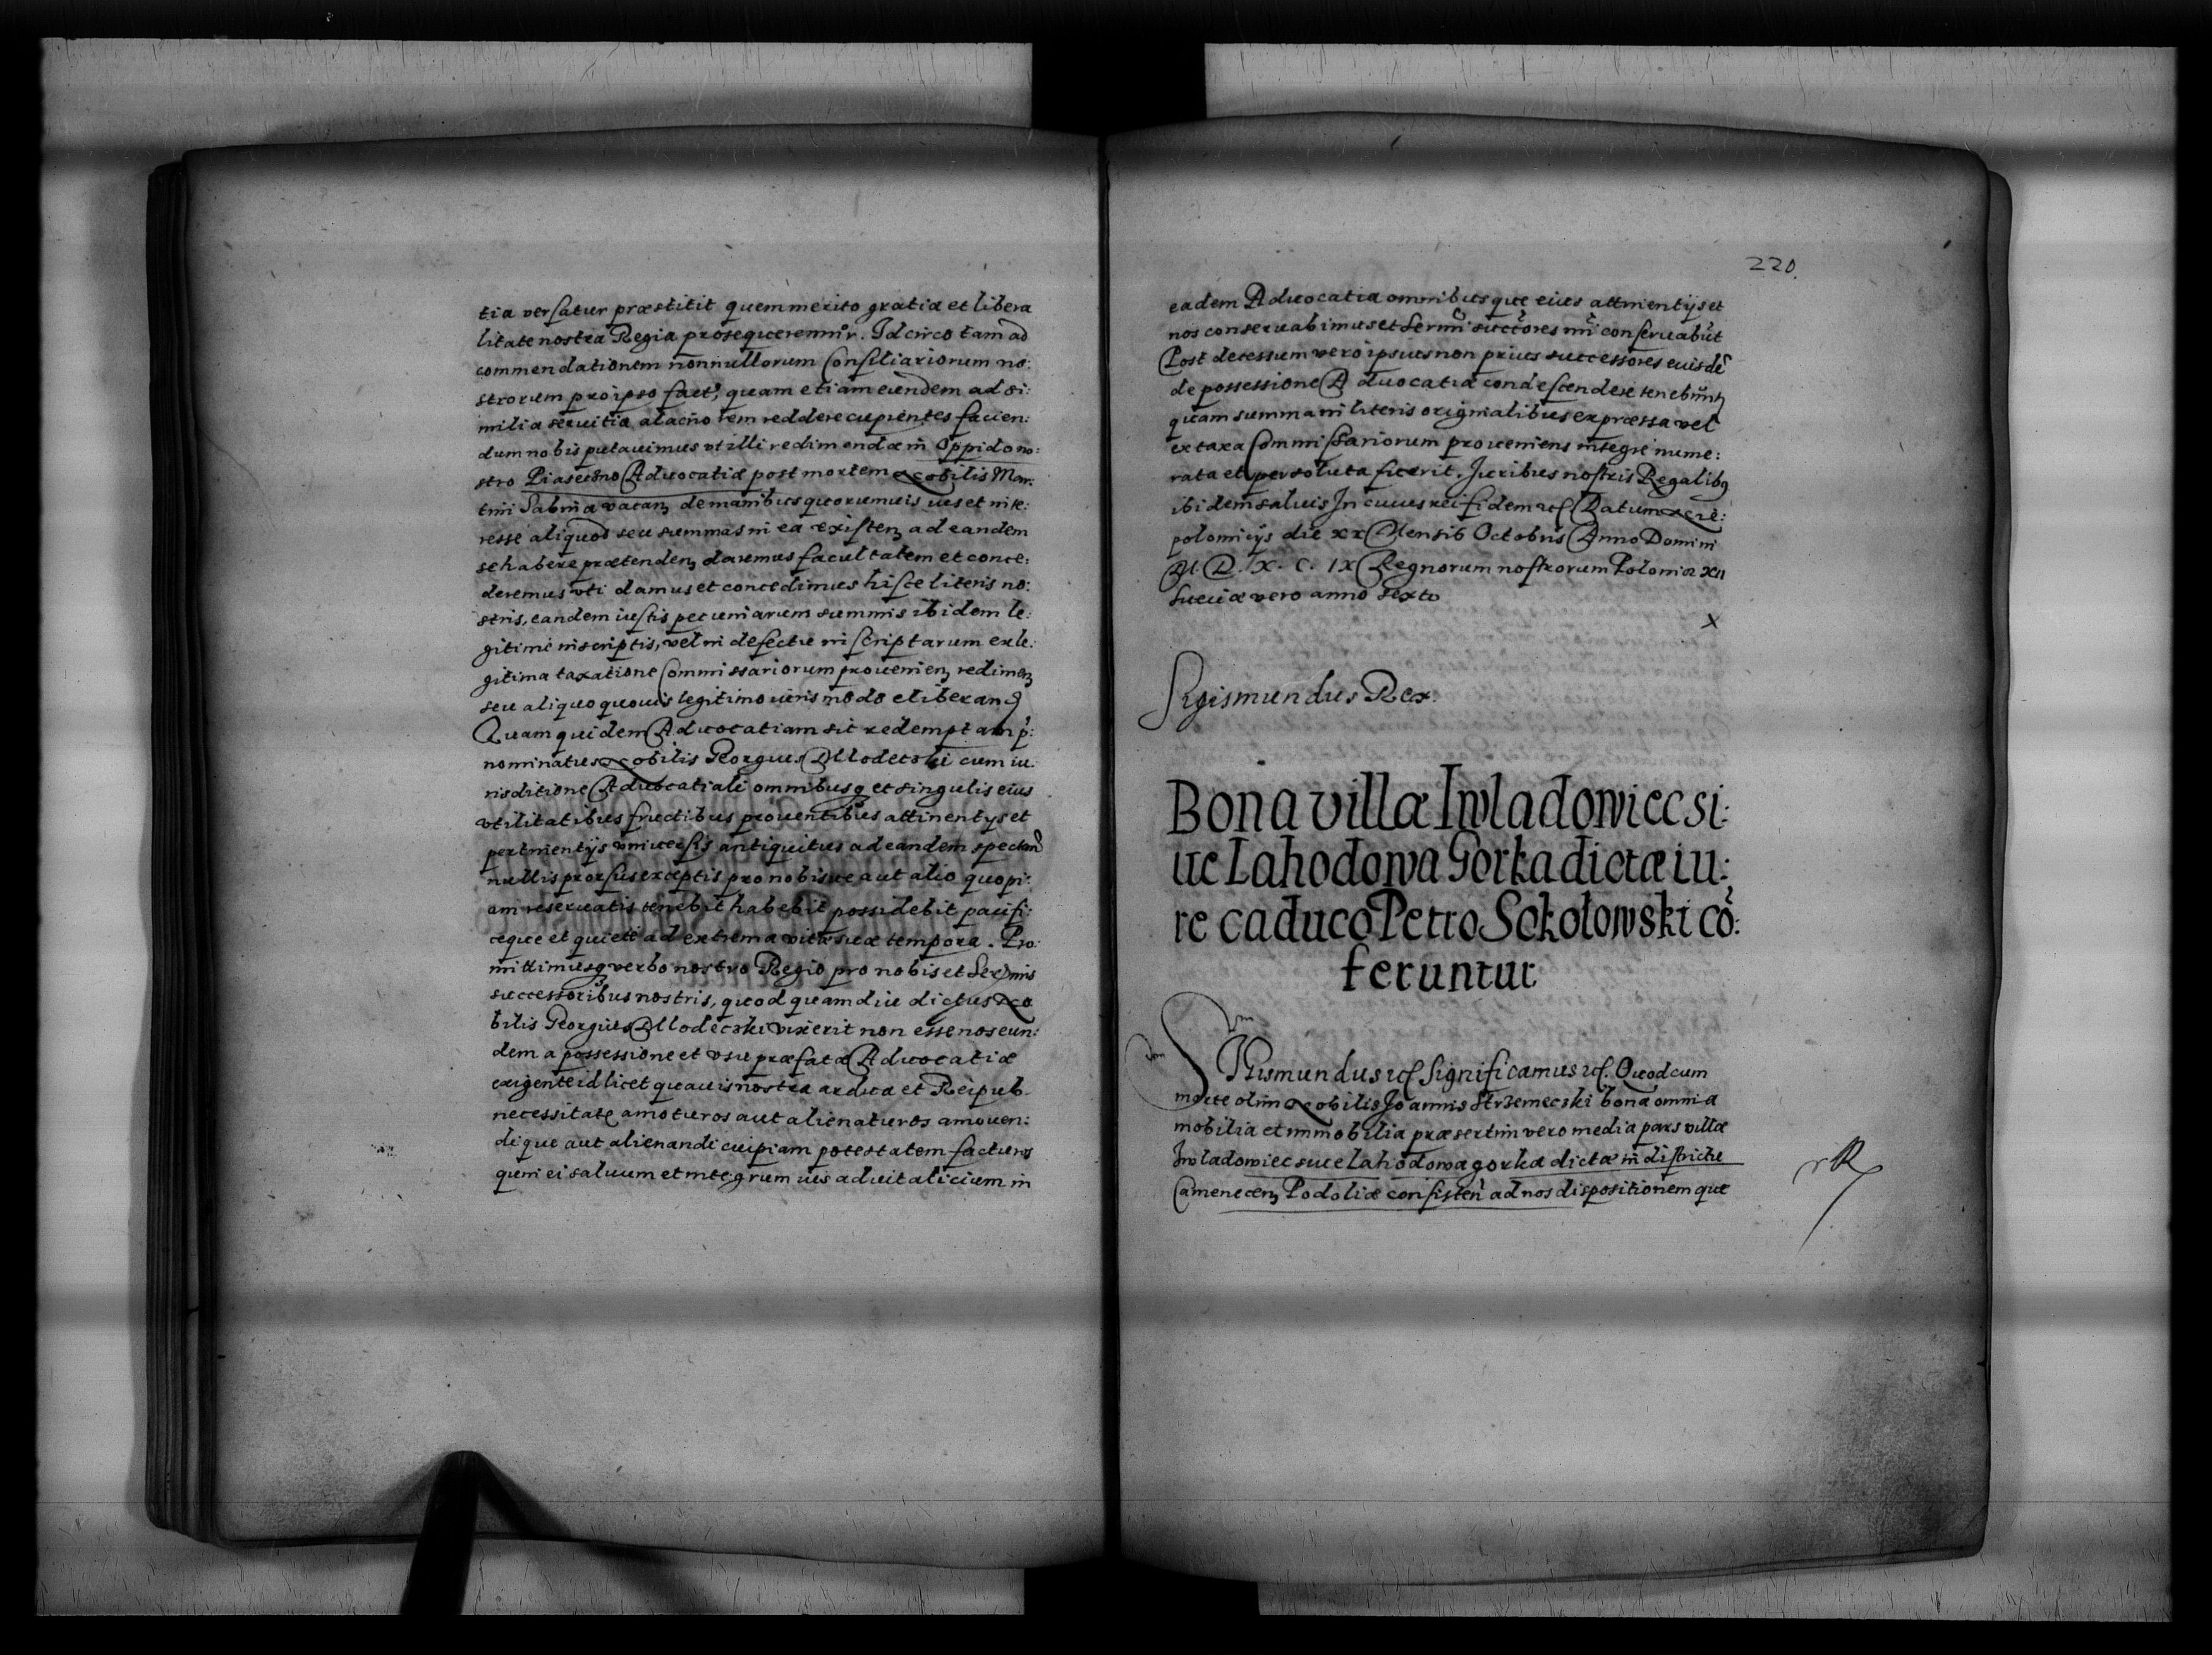 tia versatur præstitit quem merito gratia et libera
litate nostra Regia prosequeremur. Idcirco tam ad
commendationem nonnullorum Consiliariorum no:
strorum pro ipso fact, quam etiam eundem ad si:
milia servitia alacriorem reddere cupientes facien:
dum nobis putavimus vt illi redimendæ in Oppido no:
stro Piaseczno Advocatiæ post mortem Nobilis Mar:
tini Sabinæ vacan de manibus quorumvis ius et inte:
resse aliquod seu summas in ea existen ad eandem
se habere prætenden daremus facultatem et conce:
deremus vti damus et concedimus hisce literis no:
stris, eandem iustis pecuniarum summis ibidem le:
gitime inscriptis, vel in defectu inscriptarum ex le:
gitima taxatione Commissariorum provenien redimen
seu aliquo quovis legitimo iuris modo eliberand
Quam quidem Advocatiam sic redemptam p:
nominatus Nobilis Georgius Mlodecski cum iu:
risditione Advocatiali omnibusq et singulis eius
vtilitatibus fructibus proventibus attinentijs et
pertinentijs vniversis antiquitus ad eandem spectan
nullis prorsus exceptis pro nobisve aut alio quopi:
am reservatis tenebit habebit possidebit pacifi:
ceque et quiete ad extrema vitæ suæ tempora. Pro:
mittimusq verbo nostro Regio pro nobis et Sermis
successoribus nostris, quod quamdiu dictus No
bilis Georgius Mlodecski vixerit non esse nos eun:
dem a possessione et vsu præfatæ Advocatiæ
exigente id licet quavis nostra ardua et Reipub
necessitate amoturos aut alienaturos amoven:
dique aut alienandi cuipiam potestatem facturos
quin ei salvum et integrum ius advitalicium in
220.
eadem Advocatia omnibusque eius attinentijs et
nos conservabimus et Sermi succtores nri conservabut
Post decessum vero ipsius non prius successores eiusde
de possessione Advocatiæ condescendere tenebunt
quam summa in literis originalibus expressa vel
ex taxa Commissariorum proveniens integre nume:
rata et persoluta fuerit. Iuribus nostris Regalibq
ibidem salvis In cuius rei fidem etc Datum Nie:
polomicijs die XX Mensis Octobris Anno Domini
M. D. X. C. IX Regnorum nostrorum Poloniæ XII
Sueciæ vero anno Sexto
x
Sigismundus Rex.
Bona villæ Iwladowiec si:
ue Lahodowa Gorka dictæ iu:
re caduco Petro Sokolowski co:
feruntur
SIGismundus etc Significamus etc. Quod cum
morte olim Nobilis Joannis Strzemecski bona omnia
mobilia et immobilia præsertim vero media pars villæ
Iwladowiec siue Lahodowa gorka dictæ in districtu
Camenecen Podoliæ consisten ad nos dispositionemque